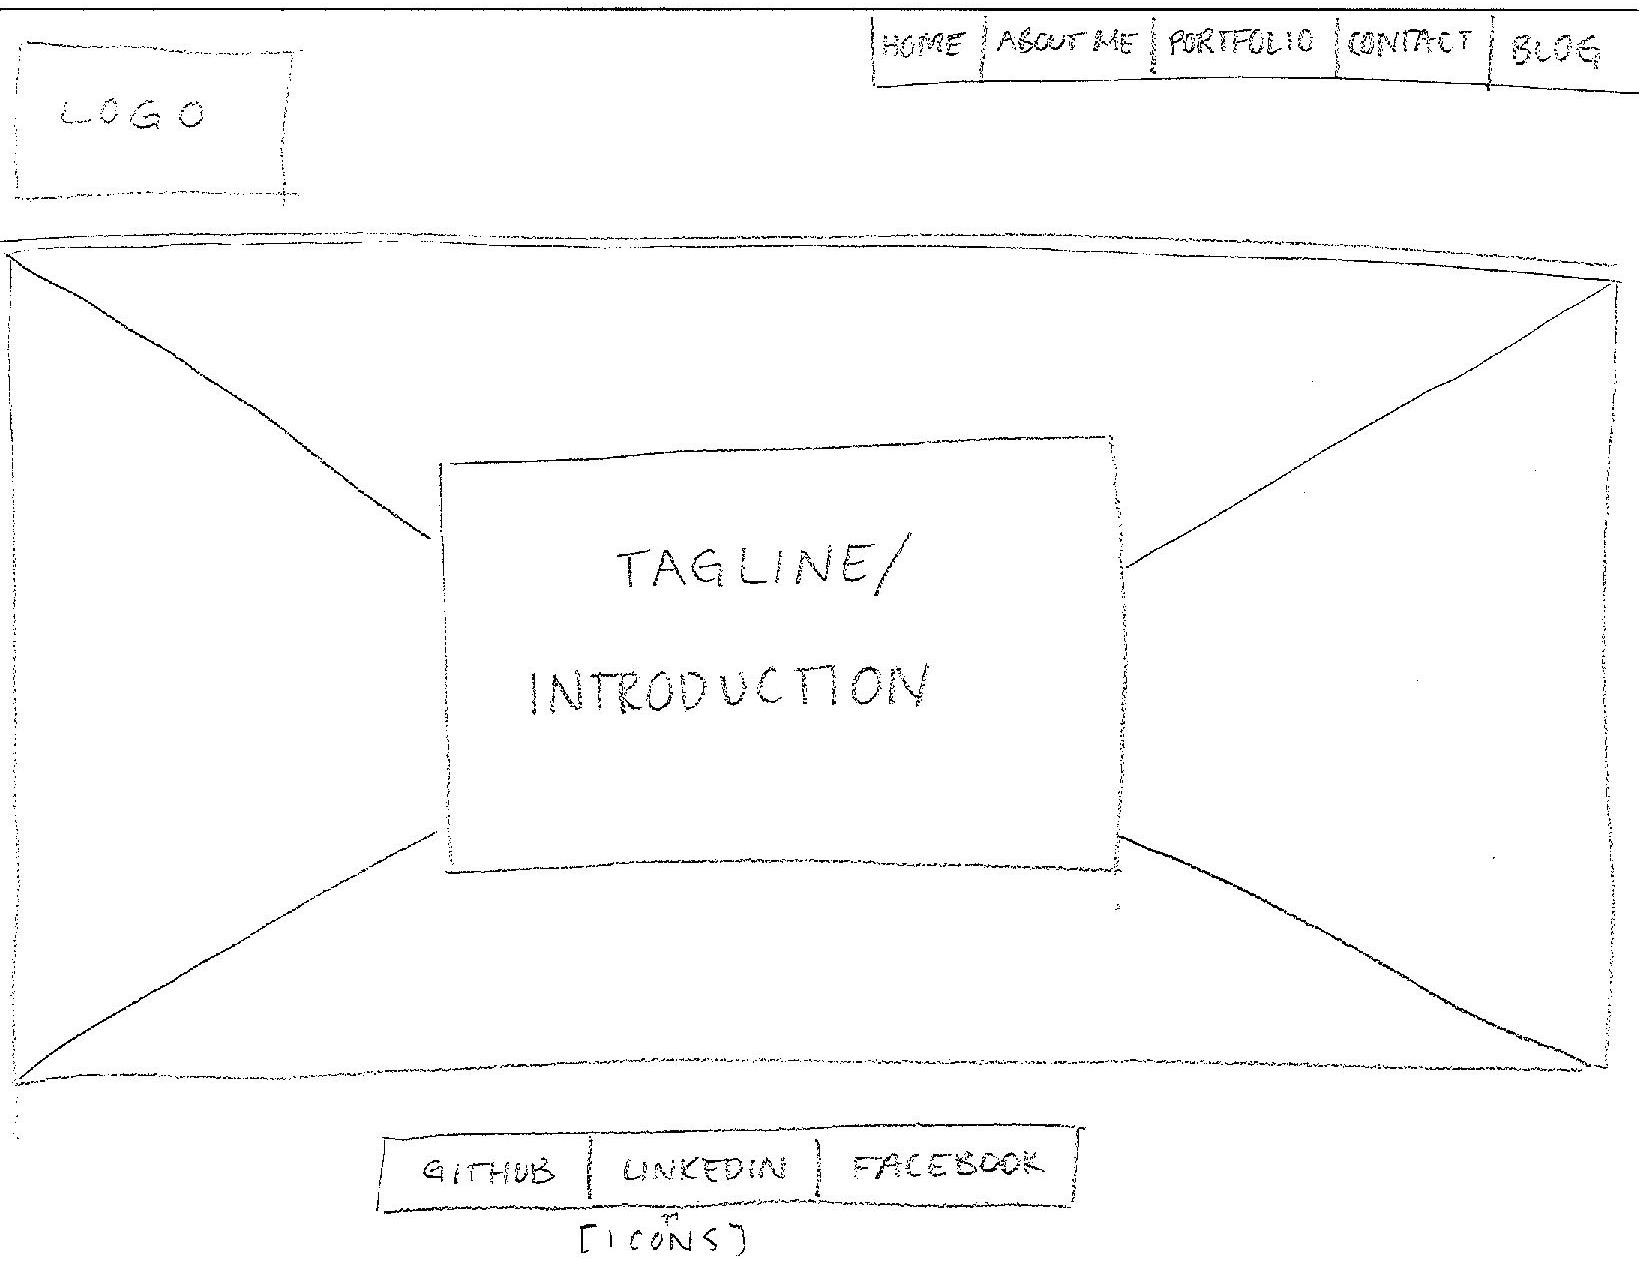 HOME ABOUT ME PORTFOLIO CONTACT BLOG
LOGO
TAGLINE/
INTRODUCTION
GITHUB LINKEDIN FACEBOOK
[ICONS]